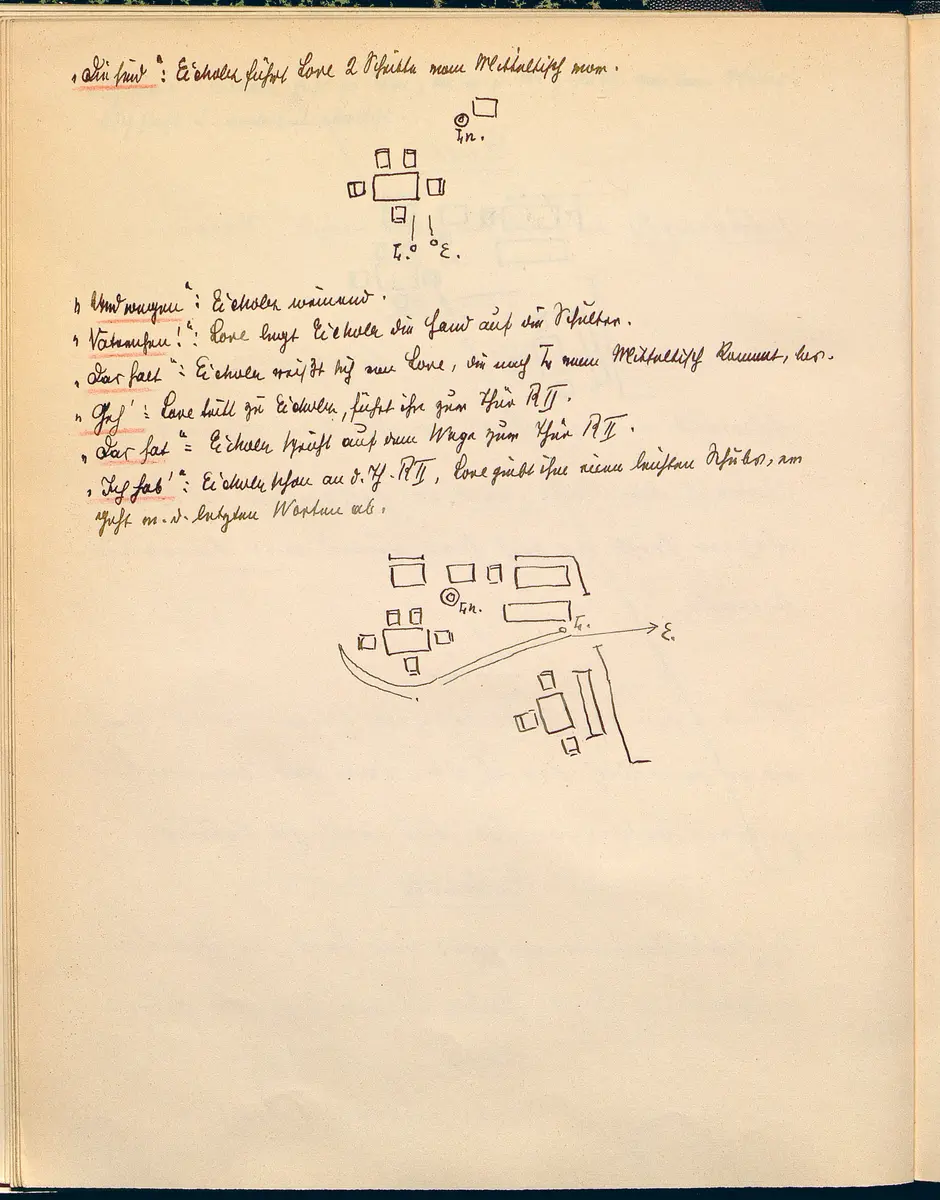 „Die sind“: Eicholz führt Lore 2 Schritte vom Mitteltisch vor.
Fr.
L. E.
„Und wegen“: Eicholz weinend.
„Vaterchen!“: Lore legt Eicholz die Hand auf die Schulter.
„Das hält“: Eicholz reißt sich von Lore, die nach L vom Mitteltisch kommt, los.
„Geh“: Lore tritt zu Eicholz, führt ihn zur Thür R II.
„Das hat“: Eicholz spricht auf dem Wege zur Thür R II.
„Ich hab'“: Eicholz schon an d. Th. R II, Lore giebt ihm einen leichten Schubs, er
geht m. d. letzten Worten ab.
Fr.
L.
E.